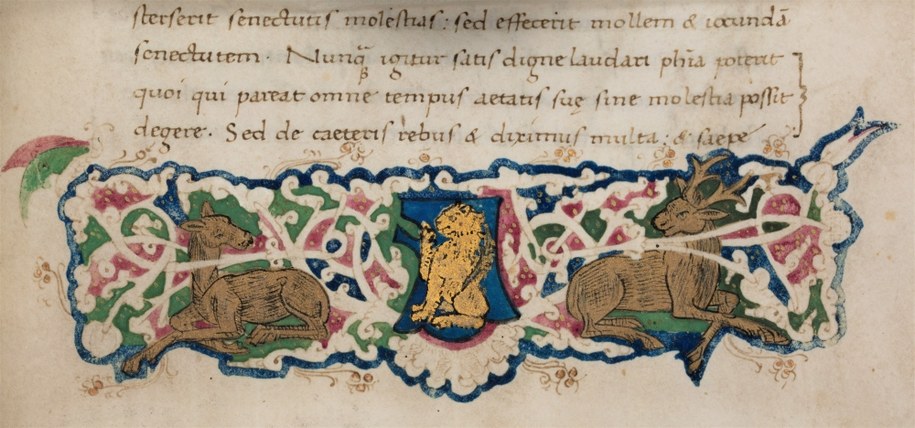 sterserit senectutis molestias: sed effecerit mollem & iocundā
senectutem. Nunq̃ igitur satis digne laudari phia poterit
quoi qui pareat omne tempus aetatis suę sine molestia possit
degere. Sed de caeteris rebus & diximus multa: & saepe